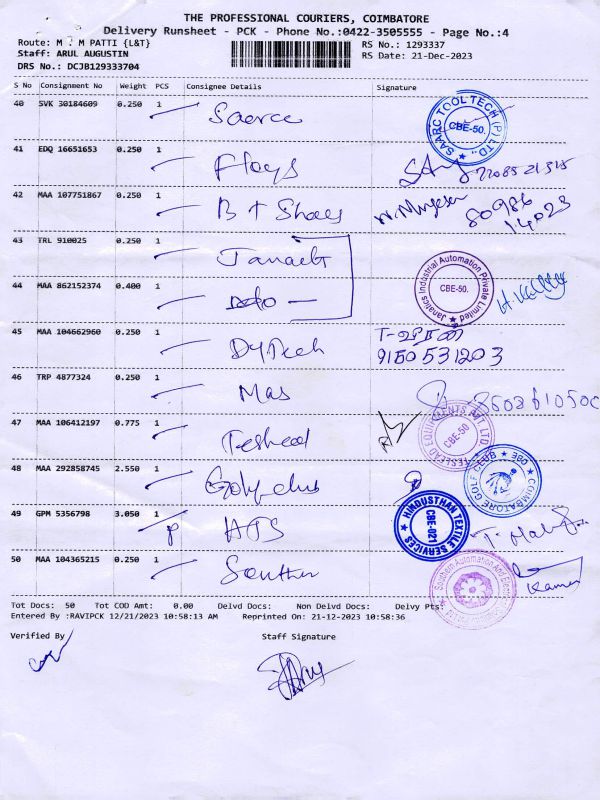 THE PROFESSIONAL COURIERS, COIMBATORE
Delivery Runsheet - PCK - Phone No.:0422-3505555 - Page No.:4
Route: M . M PATTI {L&T}
RS No.: 1293337
Staff: ARUL AUGUSTIN
RS Date: 21-Dec-2023
DRS No.: DCJB129333704
S No Consignment No Weight PCS Consignee Details Signature
40 SVK 30184609 0.250 1
SAARC TOOL TECH (P) LTD., CBE-50.
41 EDQ 16651653 0.250 1
42 MAA 107751867 0.250 1 B T Shoes
80986
14023
43 TRL 910025 0.250 1
Janatics Industrial Automation Private Limited CBE-50.
44 MAA 862152374 0.400 1
45 MAA 104662960 0.250 1 Dytech
9150531203
46 TRP 4877324 0.250 1 Mas
47 MAA 106412197 0.775 1
TESLEAD EQUIPMENTS PVT LTD CBE-50
48 MAA 292858745 2.550 1 Golf club
COIMBATORE GOLF CLUB
49 GPM 5356798 3.050 1 HTS
HINDUSTHAN TEXTILE SERVICES CBE-021
50 MAA 104365215 0.250 1 Southern
Kamar
Tot Docs: 50 Tot COD Amt: 0.00 Delvd Docs: Non Delvd Docs: Delvy Pts:
Entered By :RAVIPCK 12/21/2023 10:58:13 AM Reprinted On: 21-12-2023 10:58:36
Verified By Staff Signature